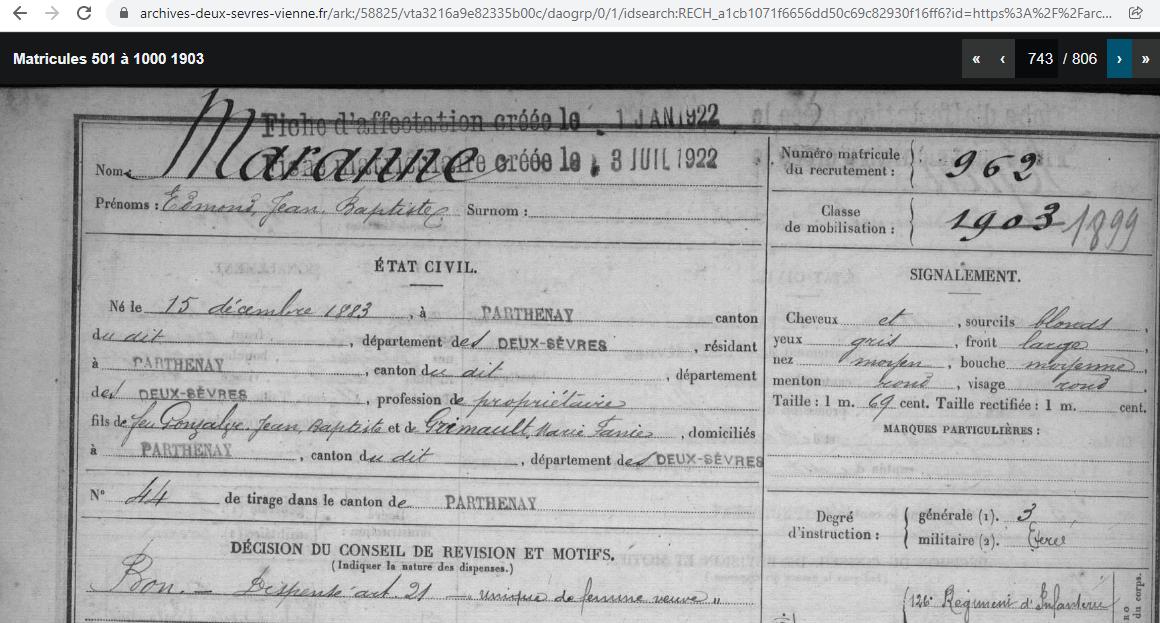 archives-deux-sevres-vienne.fr/ark:/58825/vta3216a9e82335b00c/daogrp/0/1/idsearch:RECH_a1cb1071f6656dd50c69c82930f16ff6?id=https%3A%2F%2Farc...
Matricules 501 à 1000 1903
« ‹ 743 / 806 › »
Fiche d'affectation créée le 1 JAN 1922
Nom : Maranne
créée le 3 JUIL 1922
Numéro matricule du recrutement : 962
Prénoms : Edmond, Jean Baptiste Surnom :
Classe de mobilisation : 1903 1899
ÉTAT CIVIL.
Né le 15 décembre 1883, à PARTHENAY canton
du dit, département des DEUX-SÈVRES, résidant
à PARTHENAY, canton du dit, département
des DEUX-SÈVRES, profession de propriétaire
fils de feu Gonzalve Jean, Baptiste et de Grimault, Marie, domiciliés
à PARTHENAY, canton du dit, département des DEUX-SÈVRES
N° 44 de tirage dans le canton de PARTHENAY
DÉCISION DU CONSEIL DE REVISION ET MOTIFS.
(Indiquer la nature des dispenses.)
Bon. – Dispensé art. 21 – unique de femme veuve "
SIGNALEMENT.
Cheveux et, sourcils blonds,
yeux gris, front large
nez moyen, bouche moyenne
menton rond, visage rond
Taille : 1 m. 69 cent. Taille rectifiée : 1 m. cent.
MARQUES PARTICULIÈRES :
Degré d'instruction :
générale (1). 3
militaire (2). Exercé
126e Régiment d'Infanterie
du corps.